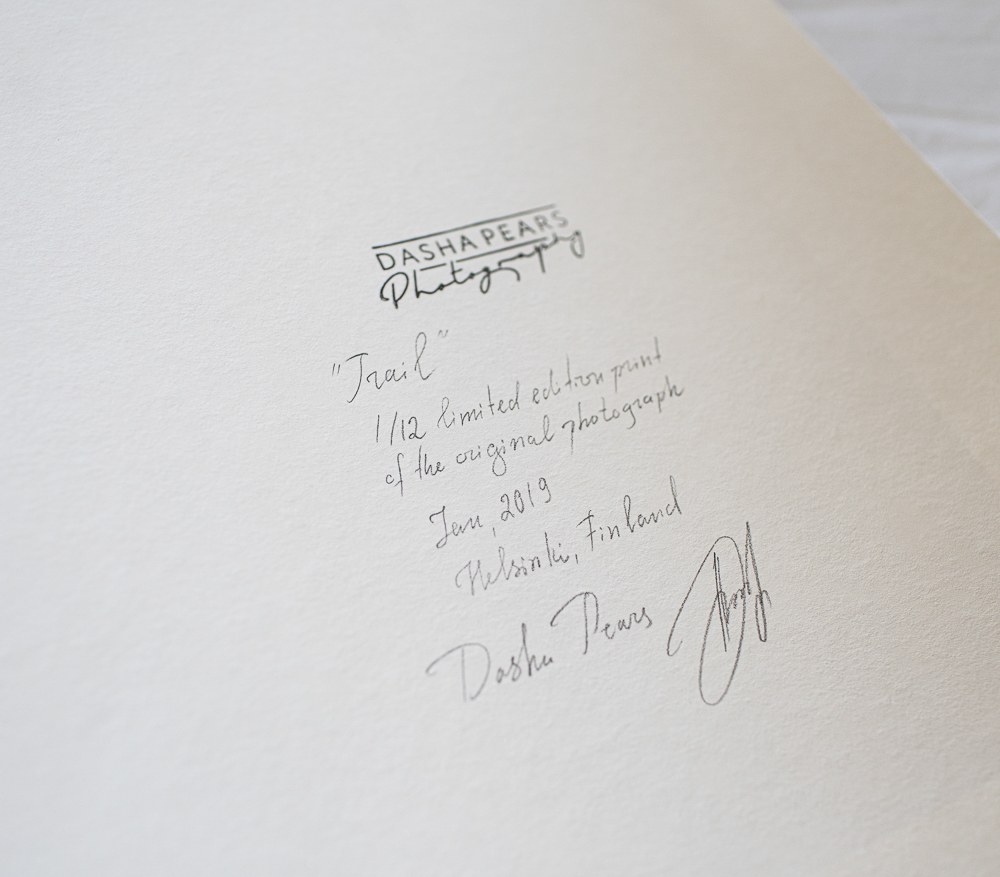 DASHA PEARS
Photography
"Trail"
1/12 limited edition print
of the original photograph
Jan, 2019
Helsinki, Finland
Dasha Pears